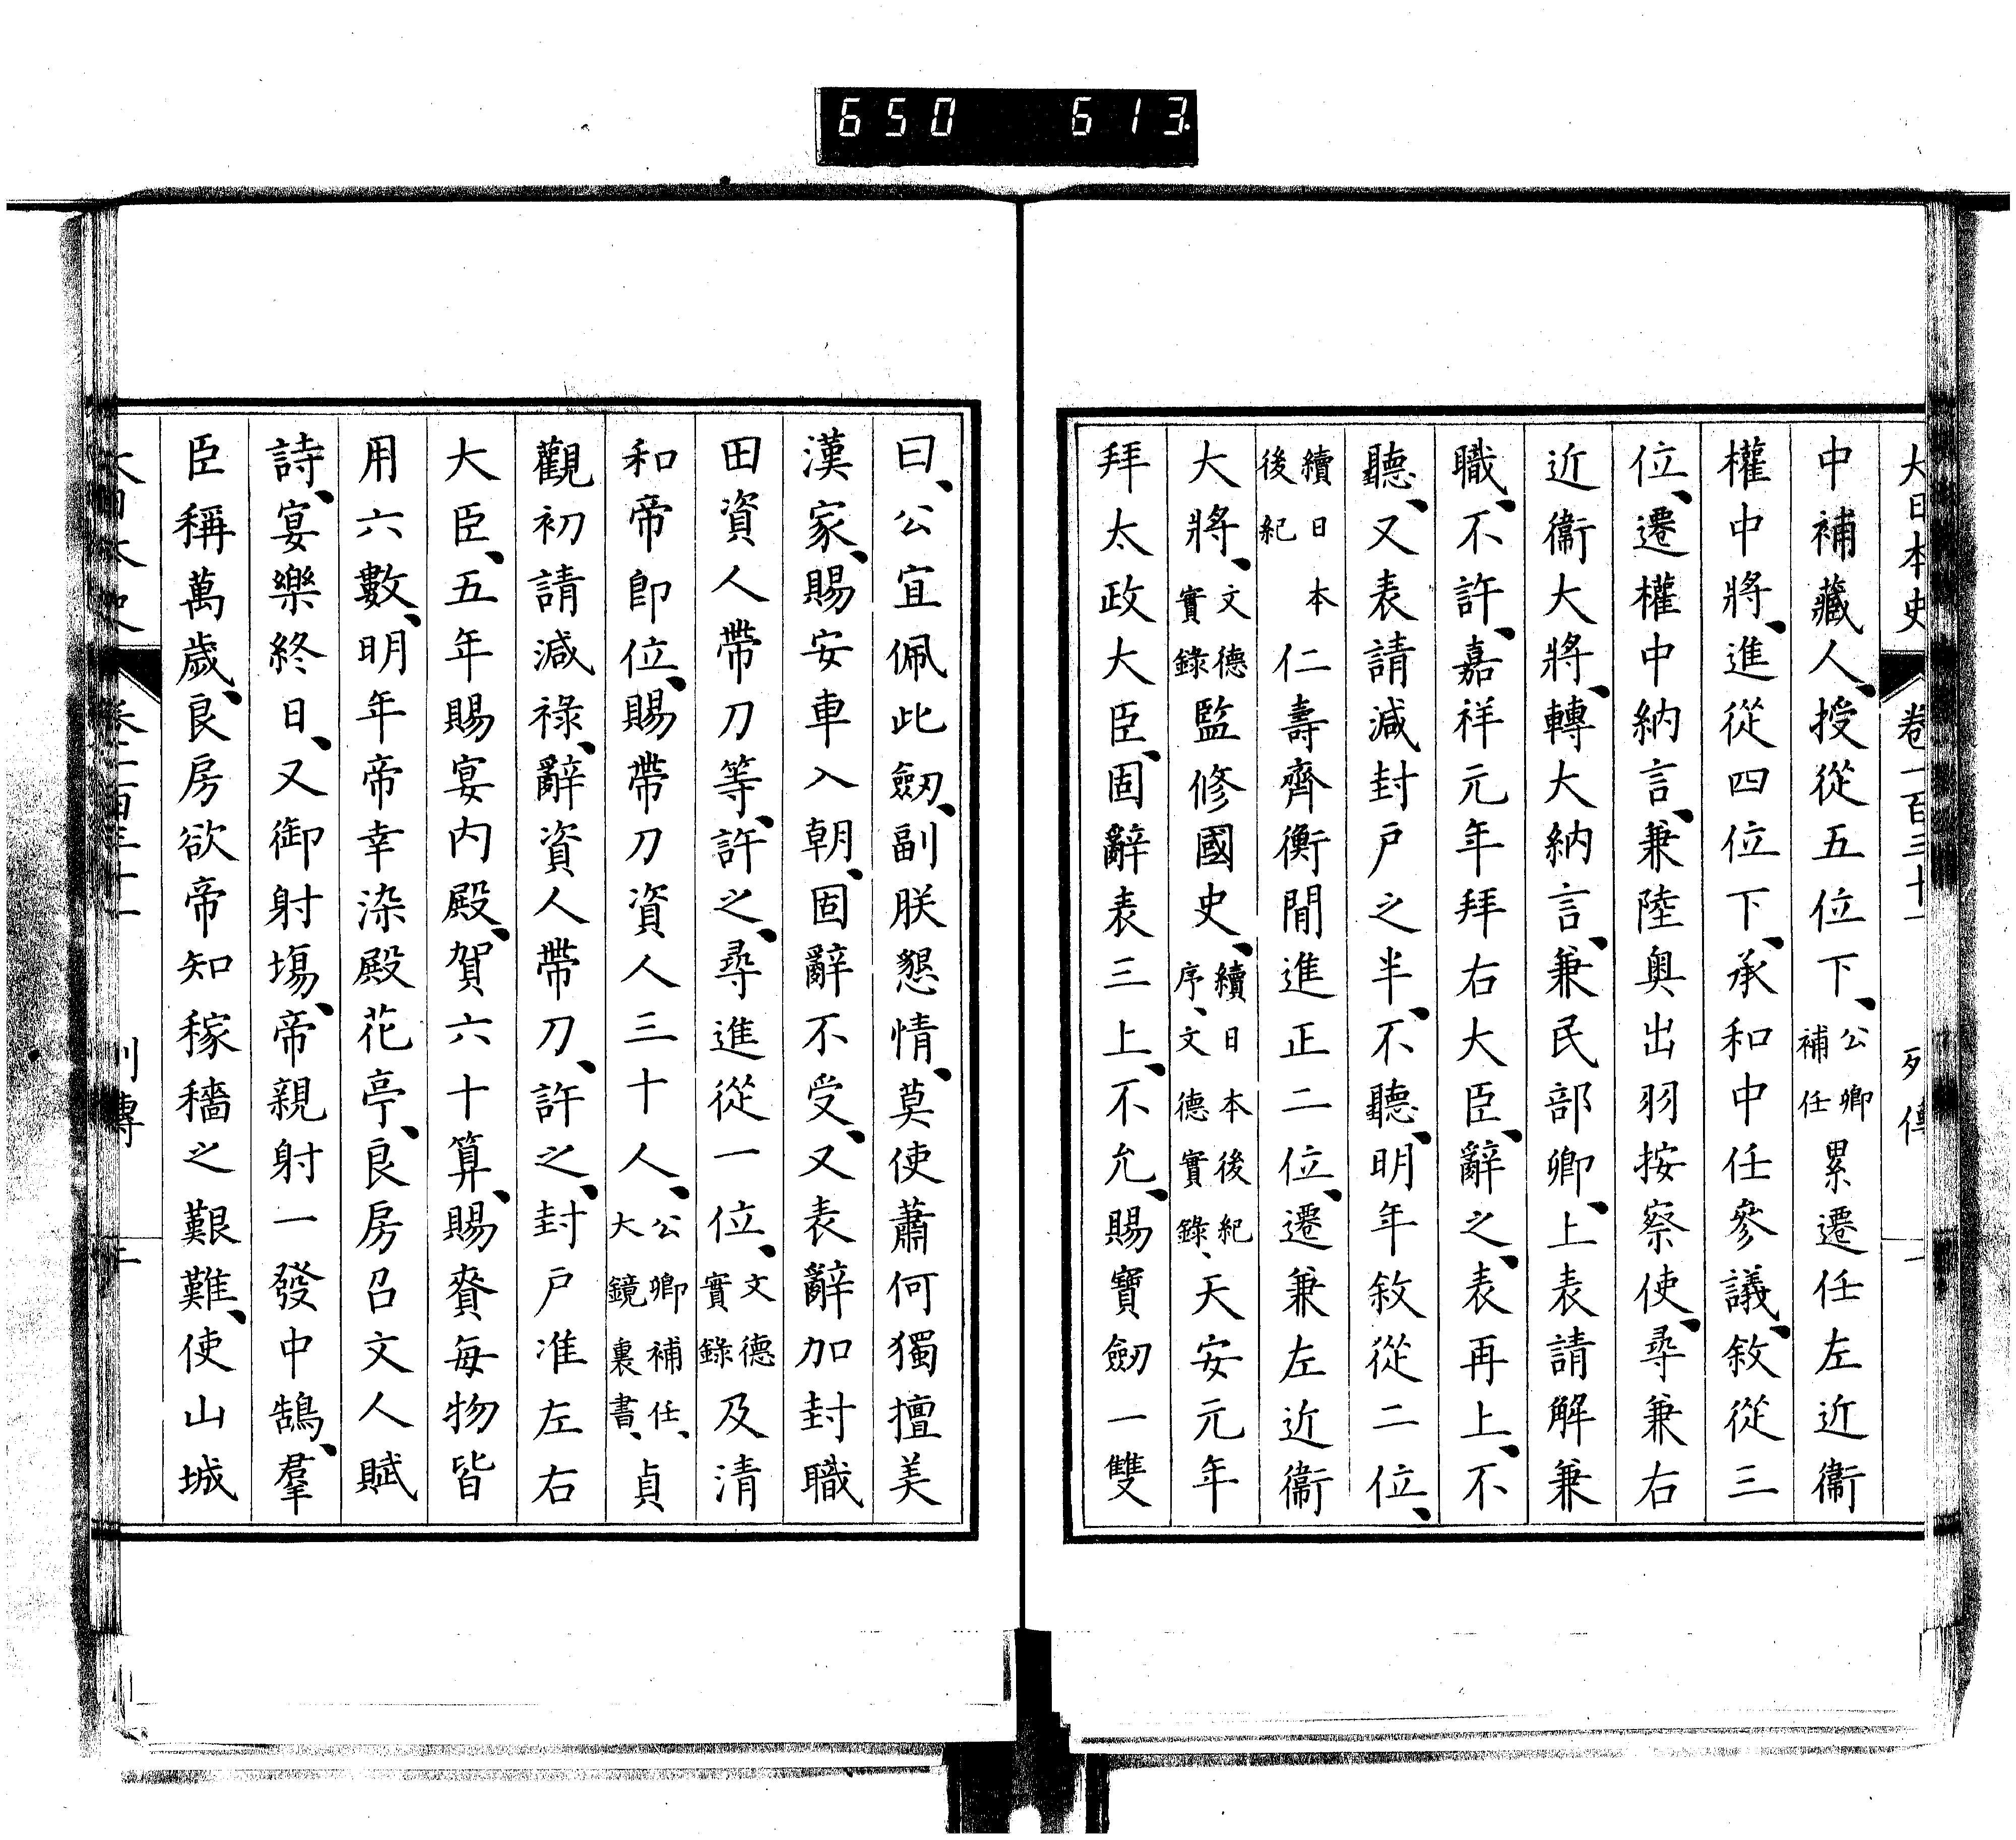 650 613.
大日本史 卷一百三十一 列傳 一
中補藏人、授從五位下、公卿補任累遷任左近衞
權中將、進從四位下、承和中任參議、敘從三
位、遷權中納言、兼陸奥出羽按察使、尋兼右
近衞大將、轉大納言、兼民部卿、上表請解兼
職、不許、嘉祥元年拜右大臣、辭之、表再上、不
聽、又表請減封戸之半、不聽、明年敘從二位、
續日本後紀仁壽齊衡間進正二位、遷兼左近衞
大將、文德實錄監修國史、續日本後紀序、文德實錄、天安元年
拜太政大臣、固辭表三上、不允、賜寶劒一雙
曰、公宜佩此劒、副朕懇情、莫使蕭何獨擅美
漢家、賜安車入朝、固辭不受、又表辭加封職
田資人帶刀等、許之、尋進從一位、文德實錄及清
和帝卽位、賜帶刀資人三十人、公卿補任、大鏡裏書、貞
觀初請減祿、辭資人帶刀、許之、封戸准左右
大臣、五年賜宴内殿、賀六十算、賜賚每物皆
用六數、明年帝幸染殿花亭、良房召文人賦
詩、宴樂終日、又御射場、帝親射一發中鵠、羣
臣稱萬歳、良房欲帝知稼穡之艱難、使山城